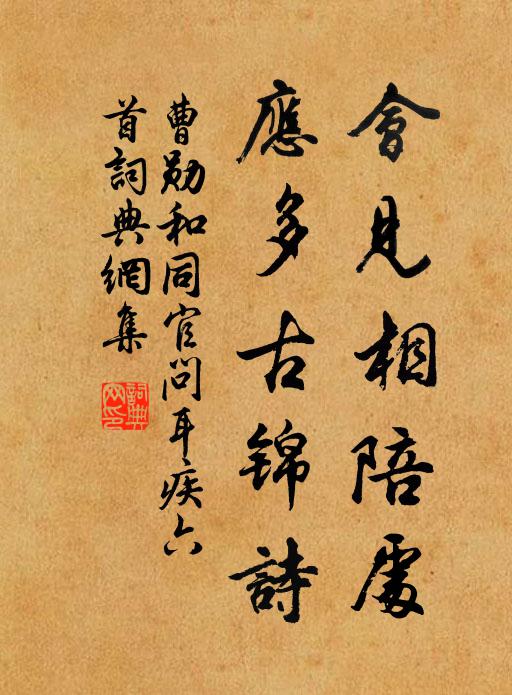 會見相陪處
應多古錦詩
曹勛和同官問耳疾六
首詞典網集
詞典網印